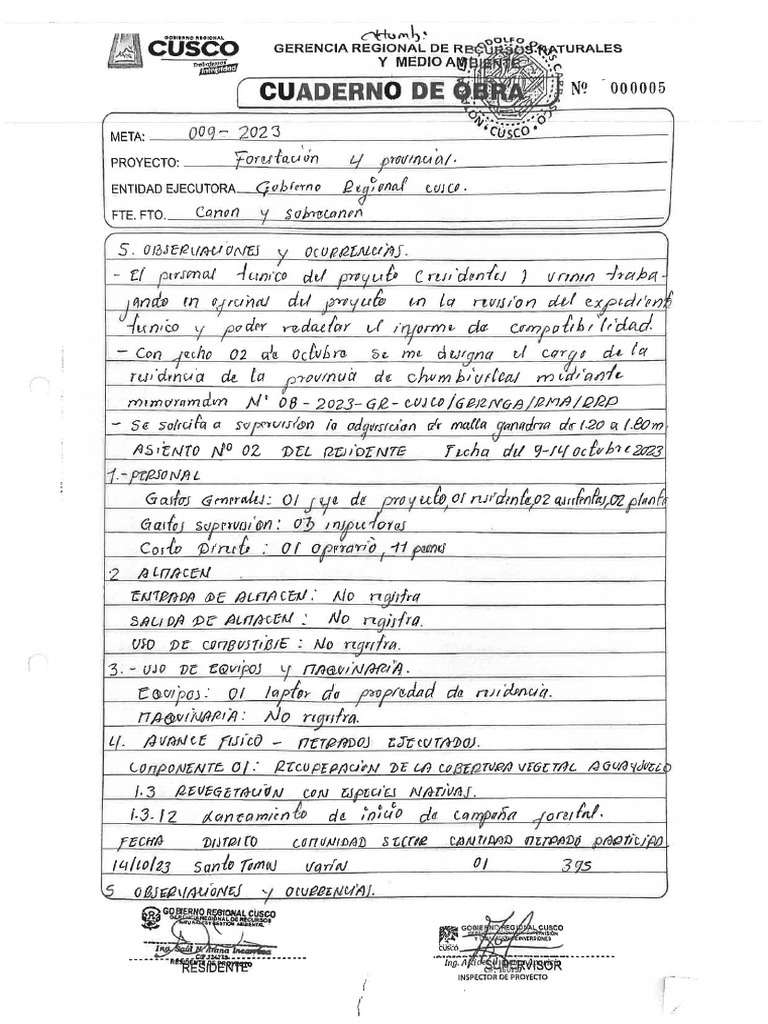 GOBIERNO REGIONAL
CUSCO
Trabajando con integridad
Humb.
GERENCIA REGIONAL DE RECURSOS NATURALES
Y MEDIO AMBIENTE
CUADERNO DE OBRA
Nº 000005
CUSCO
META: 009-2023
PROYECTO: Forestación 4 provincial.
ENTIDAD EJECUTORA Gobierno Regional cusco.
FTE. FTO. Canon y sobrecanon
5. OBSERVACIONES y OCURRENCIAS.
- El personal tecnico del proyecto (residentes) vienen traba-
jando en oficinas del proyecto en la revision del expediente
tecnico y poder redactar el informe de compatibilidad.
- Con fecha 02 de octubre se me designa el cargo de la
residencia de la provincia de chumbivilcas mediante
memorandum Nº 08-2023-GR-CUSCO/GERNGA/RMA/RRP
- Se solicita a supervision la adquisicion de malla ganadera de 1.20 a 1.80 m.
ASIENTO Nº 02 DEL RESIDENTE Fecha del 9-14 octubre 2023
1.- PERSONAL
Gastos Generales: 01 jefe de proyecto, 01 residente, 02 asistentes, 02 planta
Gastos supervision: 03 inspectores
Costo Directo: 01 operario, 11 peones
2 ALMACEN
ENTRADA DE ALMACEN: No registra
SALIDA DE ALMACEN: No registra.
USO DE COMBUSTIBLE: No registra.
3.- USO DE EQUIPOS y MAQUINARIA.
Equipos: 01 laptop de propiedad de residencia.
MAQUINARIA: No registra.
4. AVANCE FISICO - METRADOS EJECUTADOS.
COMPONENTE 01: RECUPERACION DE LA COBERTURA VEGETAL AGUA y SUELO
1.3 REVEGETACIÓN CON ESPECIES NATIVAS.
1.3.12 Lanzamiento de inicio de campaña forestal.
FECHA DISTRITO COMUNIDAD SECTOR CANTIDAD METRADO PARTICIPO
14/10/23 Santo Tomas Varin 01 395
5 OBSERVACIONES y OCURRENCIAS.
GOBIERNO REGIONAL CUSCO
GERENCIA REGIONAL DE RECURSOS
RESIDENTE DE PROYECTO
RESIDENTE
GOBIERNO REGIONAL CUSCO
CUSCO
SUPERVISOR
INSPECTOR DE PROYECTO